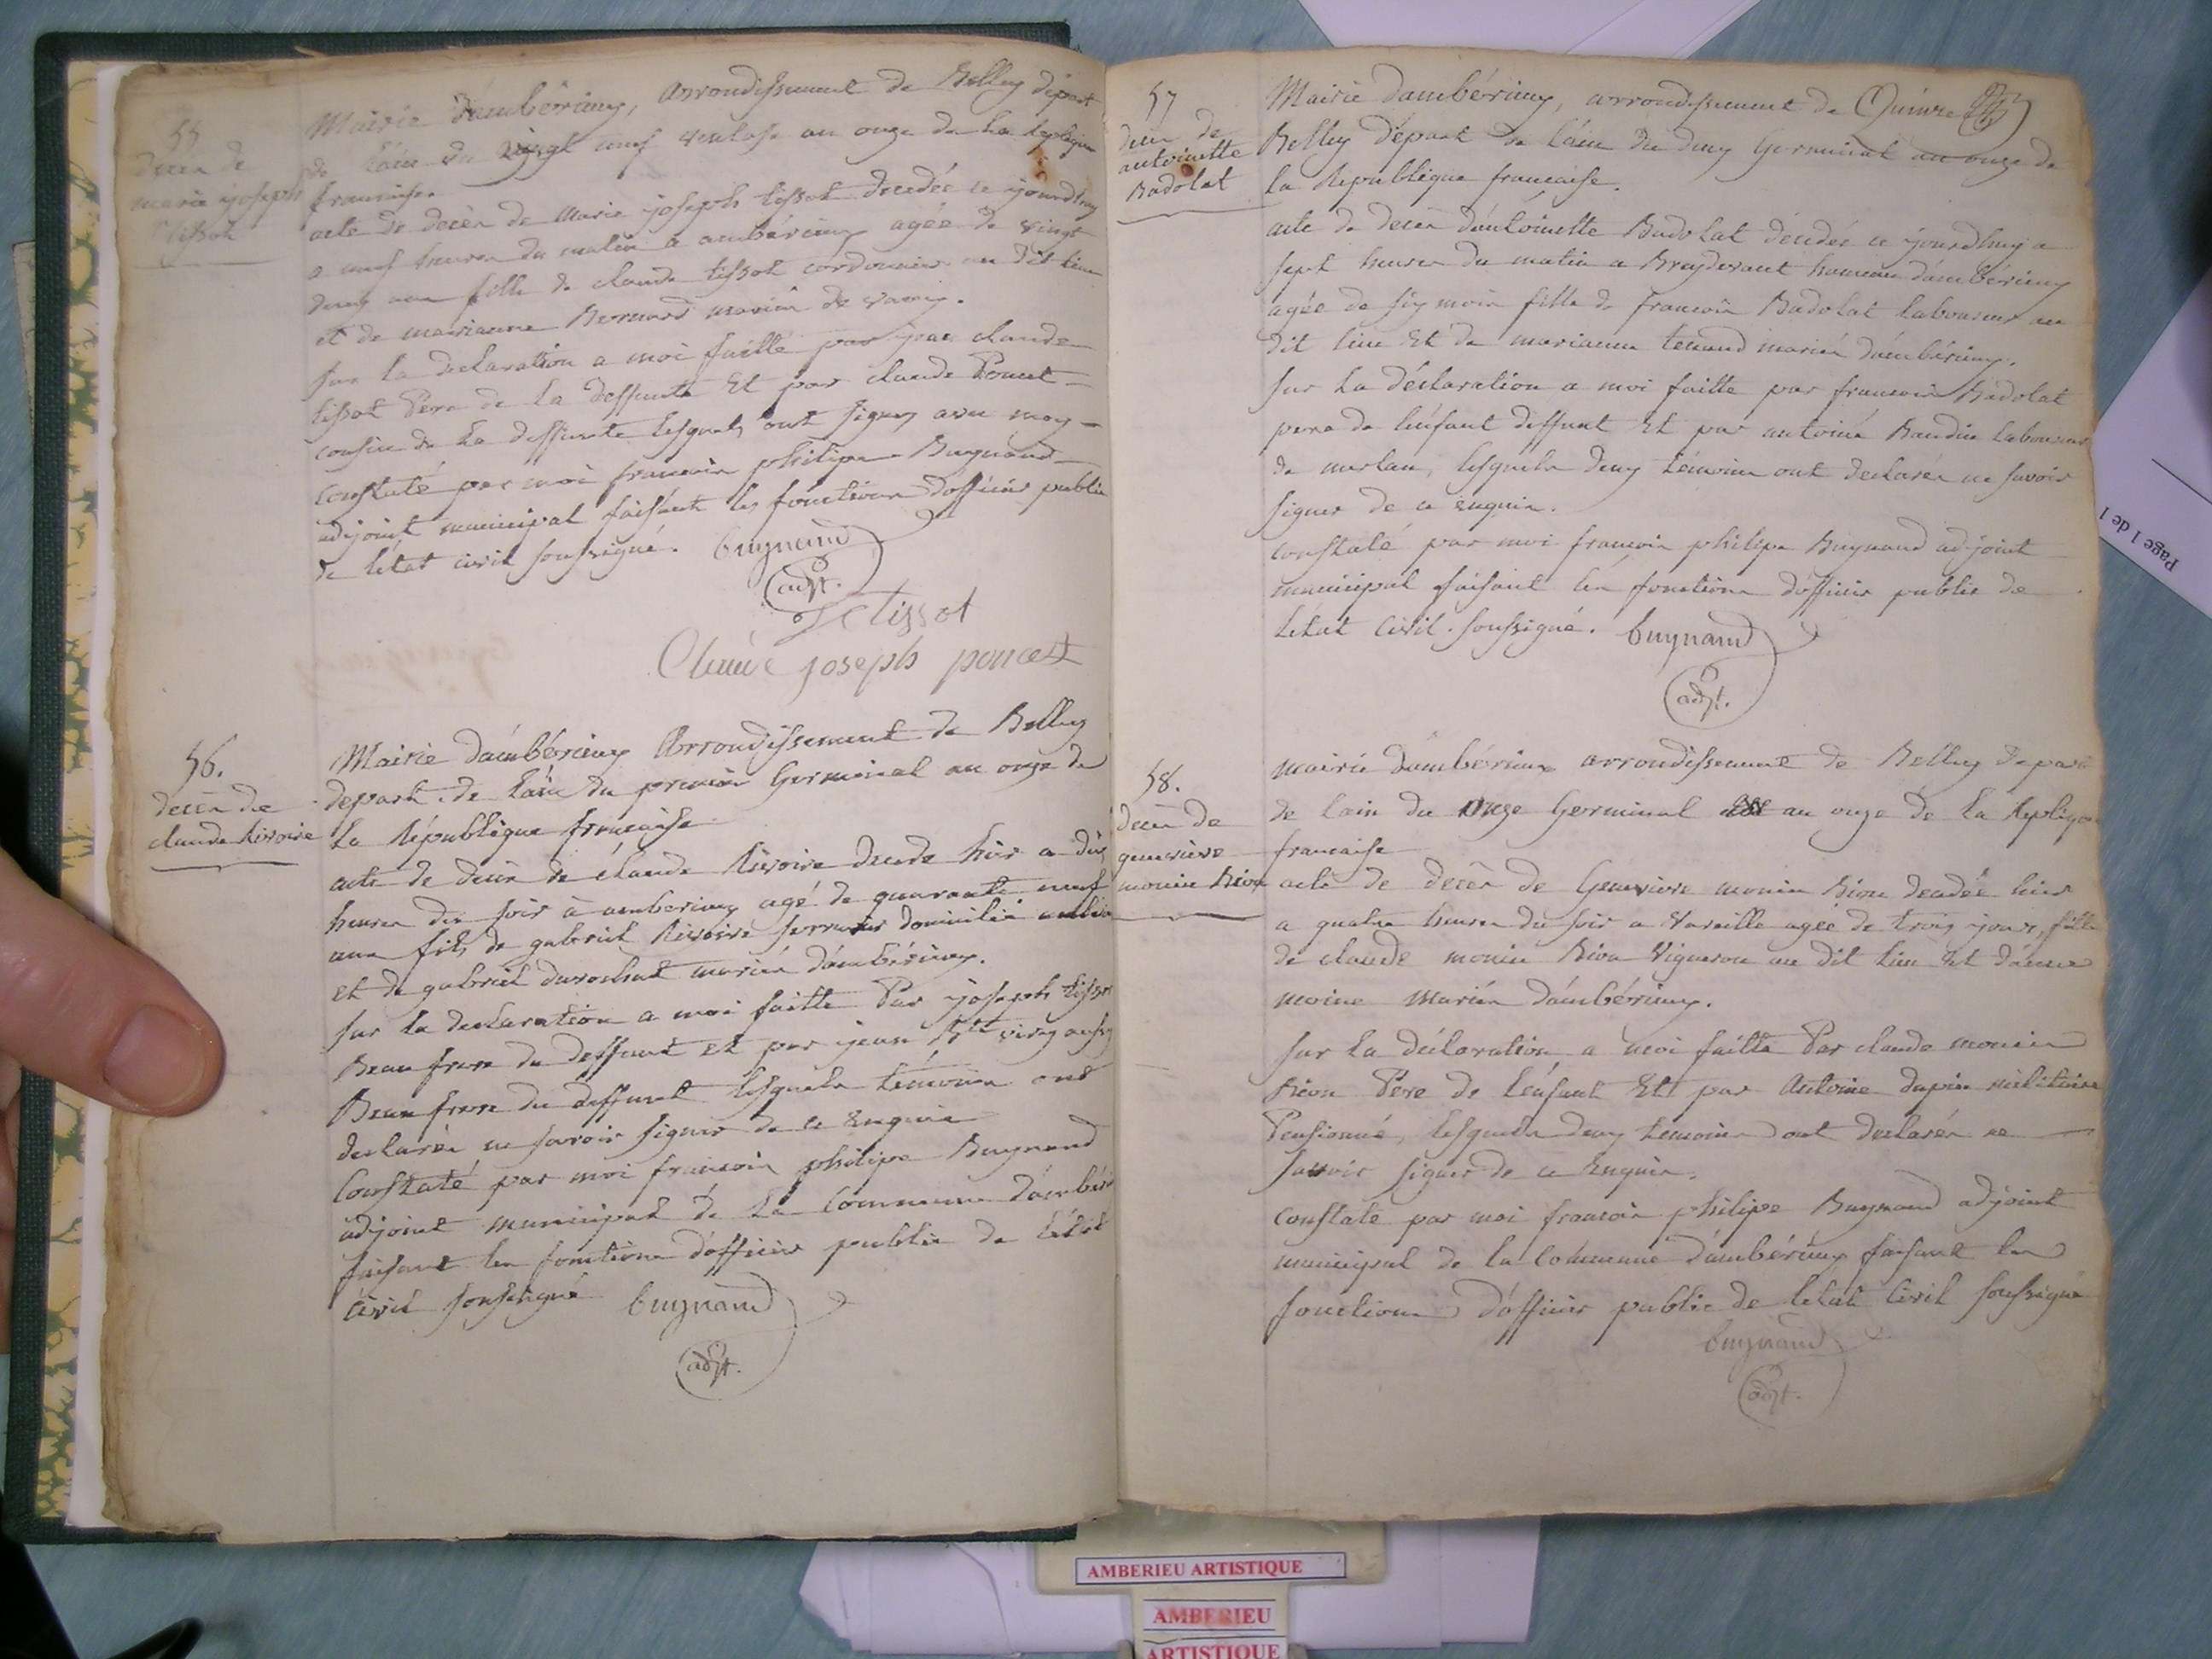 55
deces de
marie joseph
tissot
Mairie d'ambérieux, arrondissement de Belley départ
de l'ain du vingt neuf ventose an onze de la Replique
francaise.
acte de decès de Marie joseph tissot decedée ce jourdhuy
a neuf heures du matin a ambérieux agée de vingt
deux ans fille de claude tissot cordonnier au dit lieu
et de marianne Bernard mariés de
sur la declaration a moi faitte par jean claude
tissot Père de la deffunte Et par claude Poncet
cousin de la deffunte lesquels ont signez avec moy
Constaté par moi francois philipe Buynand
adjoint municipal faisante les fonctions d'officier public
de l'état civil soussigné. buynand
adjt.
JC tissot
Claude joseph poncet
56.
decès de
claude Rivoire
Mairie d'ambérieux Arrondissement de Belley
depart. de l'ain du premier Germinal an onze de
la République française
acte de decès de claude Rivoire decede hier a dix
heures du soir à amberieux agé de quarante neuf
ans fils de gabriel Rivoire domicilié
et de gabriel durochat mariés d'ambérieux.
sur la declaration a moi faitte Par joseph tissot
Beau frere du deffunt et par jean Bte virey aussy
Beau frere du deffunt lesquels témoins ont
declarés ne savoir signer de ce Enquis
Constaté par moi francois philipe Buynand
adjoint municipal de la Commune d'ambér
faisant les fonctions d'officier public de l'état
Civil soussigné buynand
adjt.
57
decès de
antoinette
Badolat
Mairie d'ambérieux, arrondissement de
Belley Départ de l'ain du deux Germinal an onze de
la Republique francaise.
acte de decès d'antoinette Badolat décédée ce jourdhuy a
sept heures du matin a Breydevant hameau d'ambérieux
agée de six mois fille de francois Badolat laboureur au
dit lieu Et de marianne tenand mariés d'ambérieux.
sur la déclaration a moi faitte par francois Badolat
pere de l'enfant deffunt Et par antoine Baudin laboureur
de, lesquels deux témoins ont declarés ne savoir
signer de ce enquis.
constaté par moi francois philipe Buynand adjoint
municipal faisant les fonctions d'officier public de
l'état Civil. soussigné. buynand
adjt.
58.
decès de
genevieve
monin Rion
mairie d'ambérieux arrondissement de Belley depart
de l'ain du onze Germinal an onze de la Repliqu
francaise
acte de decès de Genevieve monin Rion decedée hier
a quatre heures du soir a Vareille agée de trois jours, fille
de claude monin Rion Vigneron au dit lieu Et d'anne
moine Mariés d'ambérieux.
sur la déclaration a moi faitte Par claude monin
Rion Père de l'enfant Et par Antoine dupin militaire
Pensionné, lesquels deux temoins ont declarés ne
savoir signer de ce Enquis.
constaté par moi francois philipe Buynand adjoint
municipal de la Commune d'ambérieux faisant les
fonctions d'officier public de l'etat Civil soussigné
buynand
adjt.
Page 1 de 1
AMBERIEU ARTISTIQUE
AMBERIEU
ARTISTIQUE